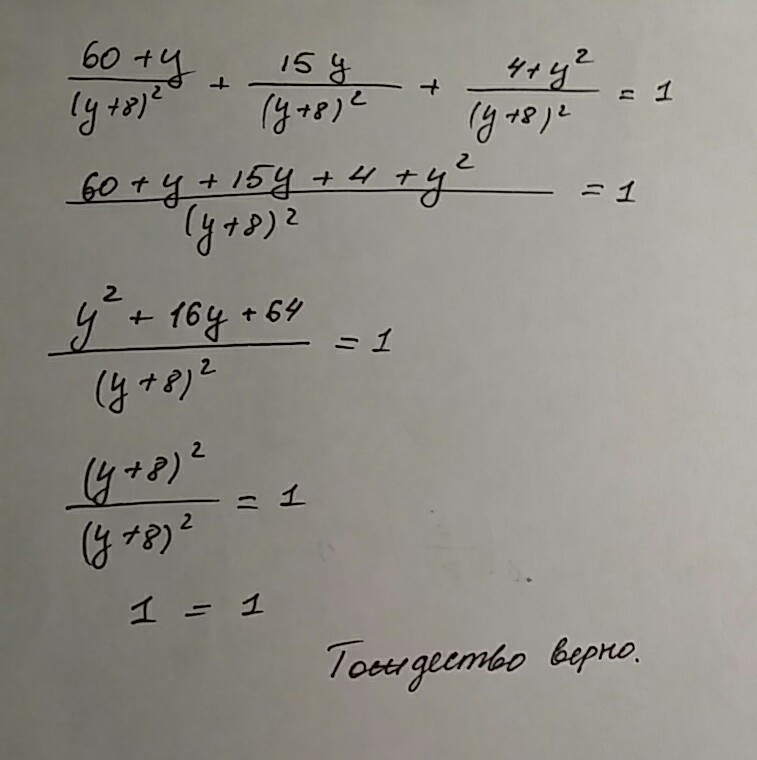 (60 + y)/(y+8)² + 15y/(y+8)² + (4+y²)/(y+8)² = 1
(60 + y + 15y + 4 + y²)/(y+8)² = 1
(y² + 16y + 64)/(y+8)² = 1
(y+8)²/(y+8)² = 1
1 = 1
Тождество верно.